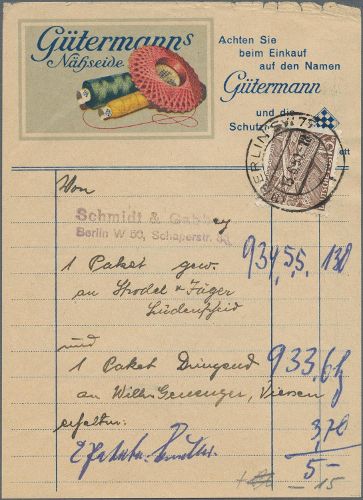 Gütermanns
Nähseide
Achten Sie
beim Einkauf
auf den Namen
Gütermann
und die
Schutz
BERLIN
Von
Schmidt &
Berlin W 50, Schaperstr.
1 Paket gew.
an Strodel & Jäger
Lüdenscheid
934,55
und
1 Paket Dringend
933,6
an Wilh. Genenger, Viersen
erhalten:
3,70
5-
15